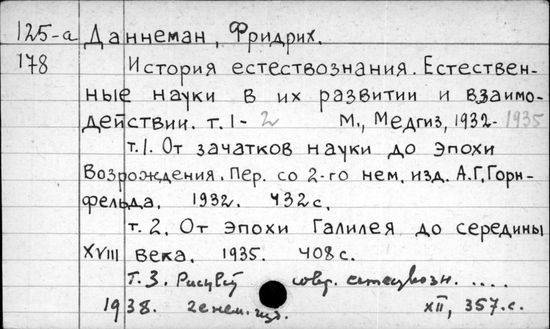 125-а Даннеман, Фридрих.
178 История естествознания. Естествен-
ные науки в их развитии и взаимо-
действии. т.1-2 М., Медгиз, 1932-1935
т.1. От зачатков науки до Эпохи
Возрождения. Пер. со 2-го нем. изд. А.Г. Горн-
фельда. 1932. 432 с.
т. 2. От Эпохи Галилея до середины
XVIII века. 1935. 408 с.
Т. 3. совр. естествозн. ....
1938. 2е нем. изд. XII, 357 с.